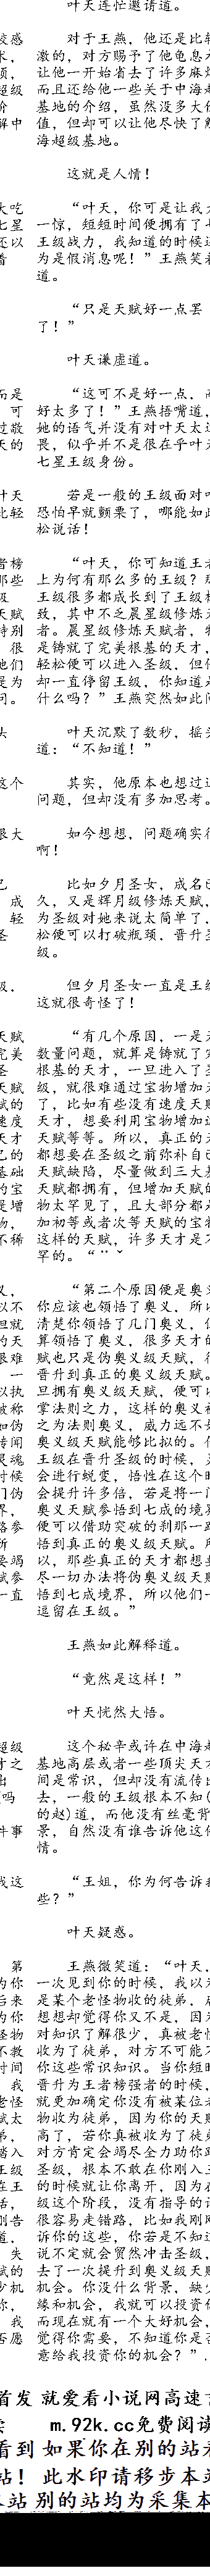 叶天连忙邀请道。
对于王燕，他还是比
激的，对方赐予了他龟息
让他一开始省去了许多麻
而且还给他一些关于中海
基地的介绍，虽然没多大
值，但却可以让他尽快了
海超级基地。
这就是人情！
“叶天，你可是让我
一惊，短短时间便拥有了
王级战力，我知道的时候
为是假消息呢！”王燕笑
道。
“只是天赋好一点罢
了！”
叶天谦虚道。
“这可不是好一点，
好太多了！”王燕捂嘴道，
她的语气并没有对叶天太
畏，似乎并不是很在乎叶
七星王级身份。
若是一般的王级面对
恐怕早就颤栗了，哪能如
松说话！
“叶天，你可知道王
上为何有那么多的王级？
王级很多都成长到了王级
致，其中不乏晨星级修炼
者。晨星级修炼天赋者，
是铸就了完美根基的天才，
轻松便可以进入圣级，但
却一直停留王级，你知道
什么吗？”王燕突然如此
叶天沉默了数秒，摇
道：“不知道！”
其实，他原本也想过
问题，但却没有多加思考。
如今想想，问题确实
啊！
比如夕月圣女，成名
久，又是辉月级修炼天赋，
为圣级对她来说太简单了，
松便可以打破瓶颈，晋升
级。
但夕月圣女一直是王
这就很奇怪了！
“有几个原因，一是
数量问题，就算是铸就了
根基的天才，一旦进入了
级，就很难通过宝物增加
了，比如有些没有速度天
天才，想要利用宝物增加
天赋等等。所以，真正的
都想要在圣级之前弥补自
天赋缺陷，尽量做到三大
天赋都拥有，但增加天赋
物太罕见了，且大部分都
加初等或者次等天赋的宝
这样的天赋，许多天才是
罕的。“¨ˇ
“第二个原因便是奥
你应该也领悟了奥义，所
清楚你领悟了几门奥义，
算领悟了奥义，很多天才
赋也只是伪奥义级天赋，
晋升到真正的奥义级天赋。
旦拥有奥义级天赋，便可
掌法则之力，这样的奥义
之为法则奥义，威力远不
奥义级天赋能够比拟的。
王级在晋升圣级的时候，
会进行蜕变，悟性在这个
会提升许多倍，若是将一
奥义天赋参悟到七成的境
便可以借助突破的刹那一
悟到真正的奥义级天赋。
以，那些真正的天才都想
尽一切办法将伪奥义级天
悟到七成境界，所以他们
逗留在王级。”
王燕如此解释道。
“竟然是这样！”
叶天恍然大悟。
这个秘辛或许在中海
基地高层或者一些顶尖天
间是常识，但却没有流传
去，一般的王级根本不知(
的赵)道，而他没有丝毫背
景，自然没有谁告诉他这
情。
“王姐，你为何告诉
些？”
叶天疑惑。
王燕微笑道：“叶天，
一次见到你的时候，我以
是某个老怪物收的徒弟，
想想却觉得你又不是，因
对知识了解很少，真被老
收为了徒弟，对方不可能
你这些常识知识。当你短
晋升为王者榜强者的时候，
就更加确定你没有被某位
物收为徒弟，因为你的天
高了，若你真被收为了徒
对方肯定会竭尽全力助你
圣级，根本不敢在你刚入
的时候就让你离开，因为
级这个阶段，没有指导的
很容易走错路，比如我刚
诉你的这些，你若是不知
说不定就会贸然冲击圣级，
去了一次提升到奥义级天
机会。你没什么背景，缺
缘和机会，我就可以投资
而现在就有一个大好机会，
觉得你需要，不知道你是
意给我投资你的机会？”.
首发 就爱看小说网高速
m.92k.cc免费阅读
看到 如果你在别的站
站！ 此水印请移步本
站 别的站均为采集本